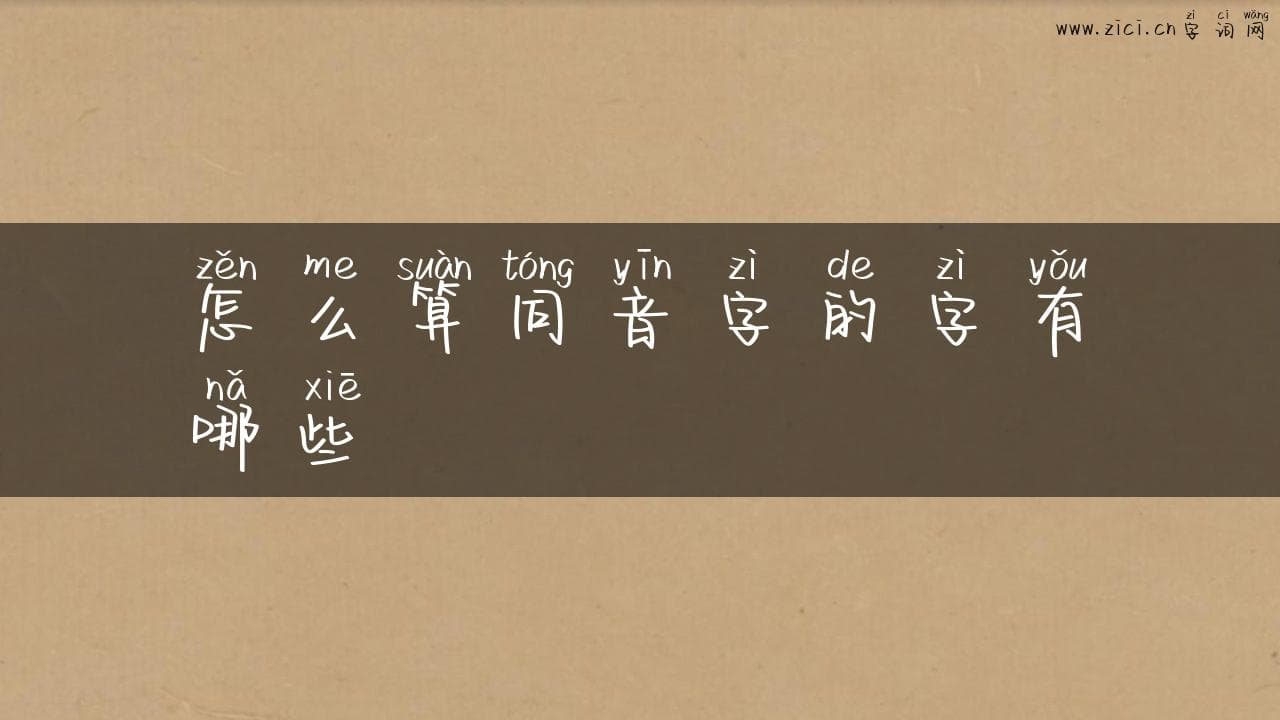 zì cí wǎng
www.zici.cn 字 词 网
zěn me suàn tóng yīn zì de zì yǒu
怎 么 算 同 音 字 的 字 有
nǎ xiē
哪 些